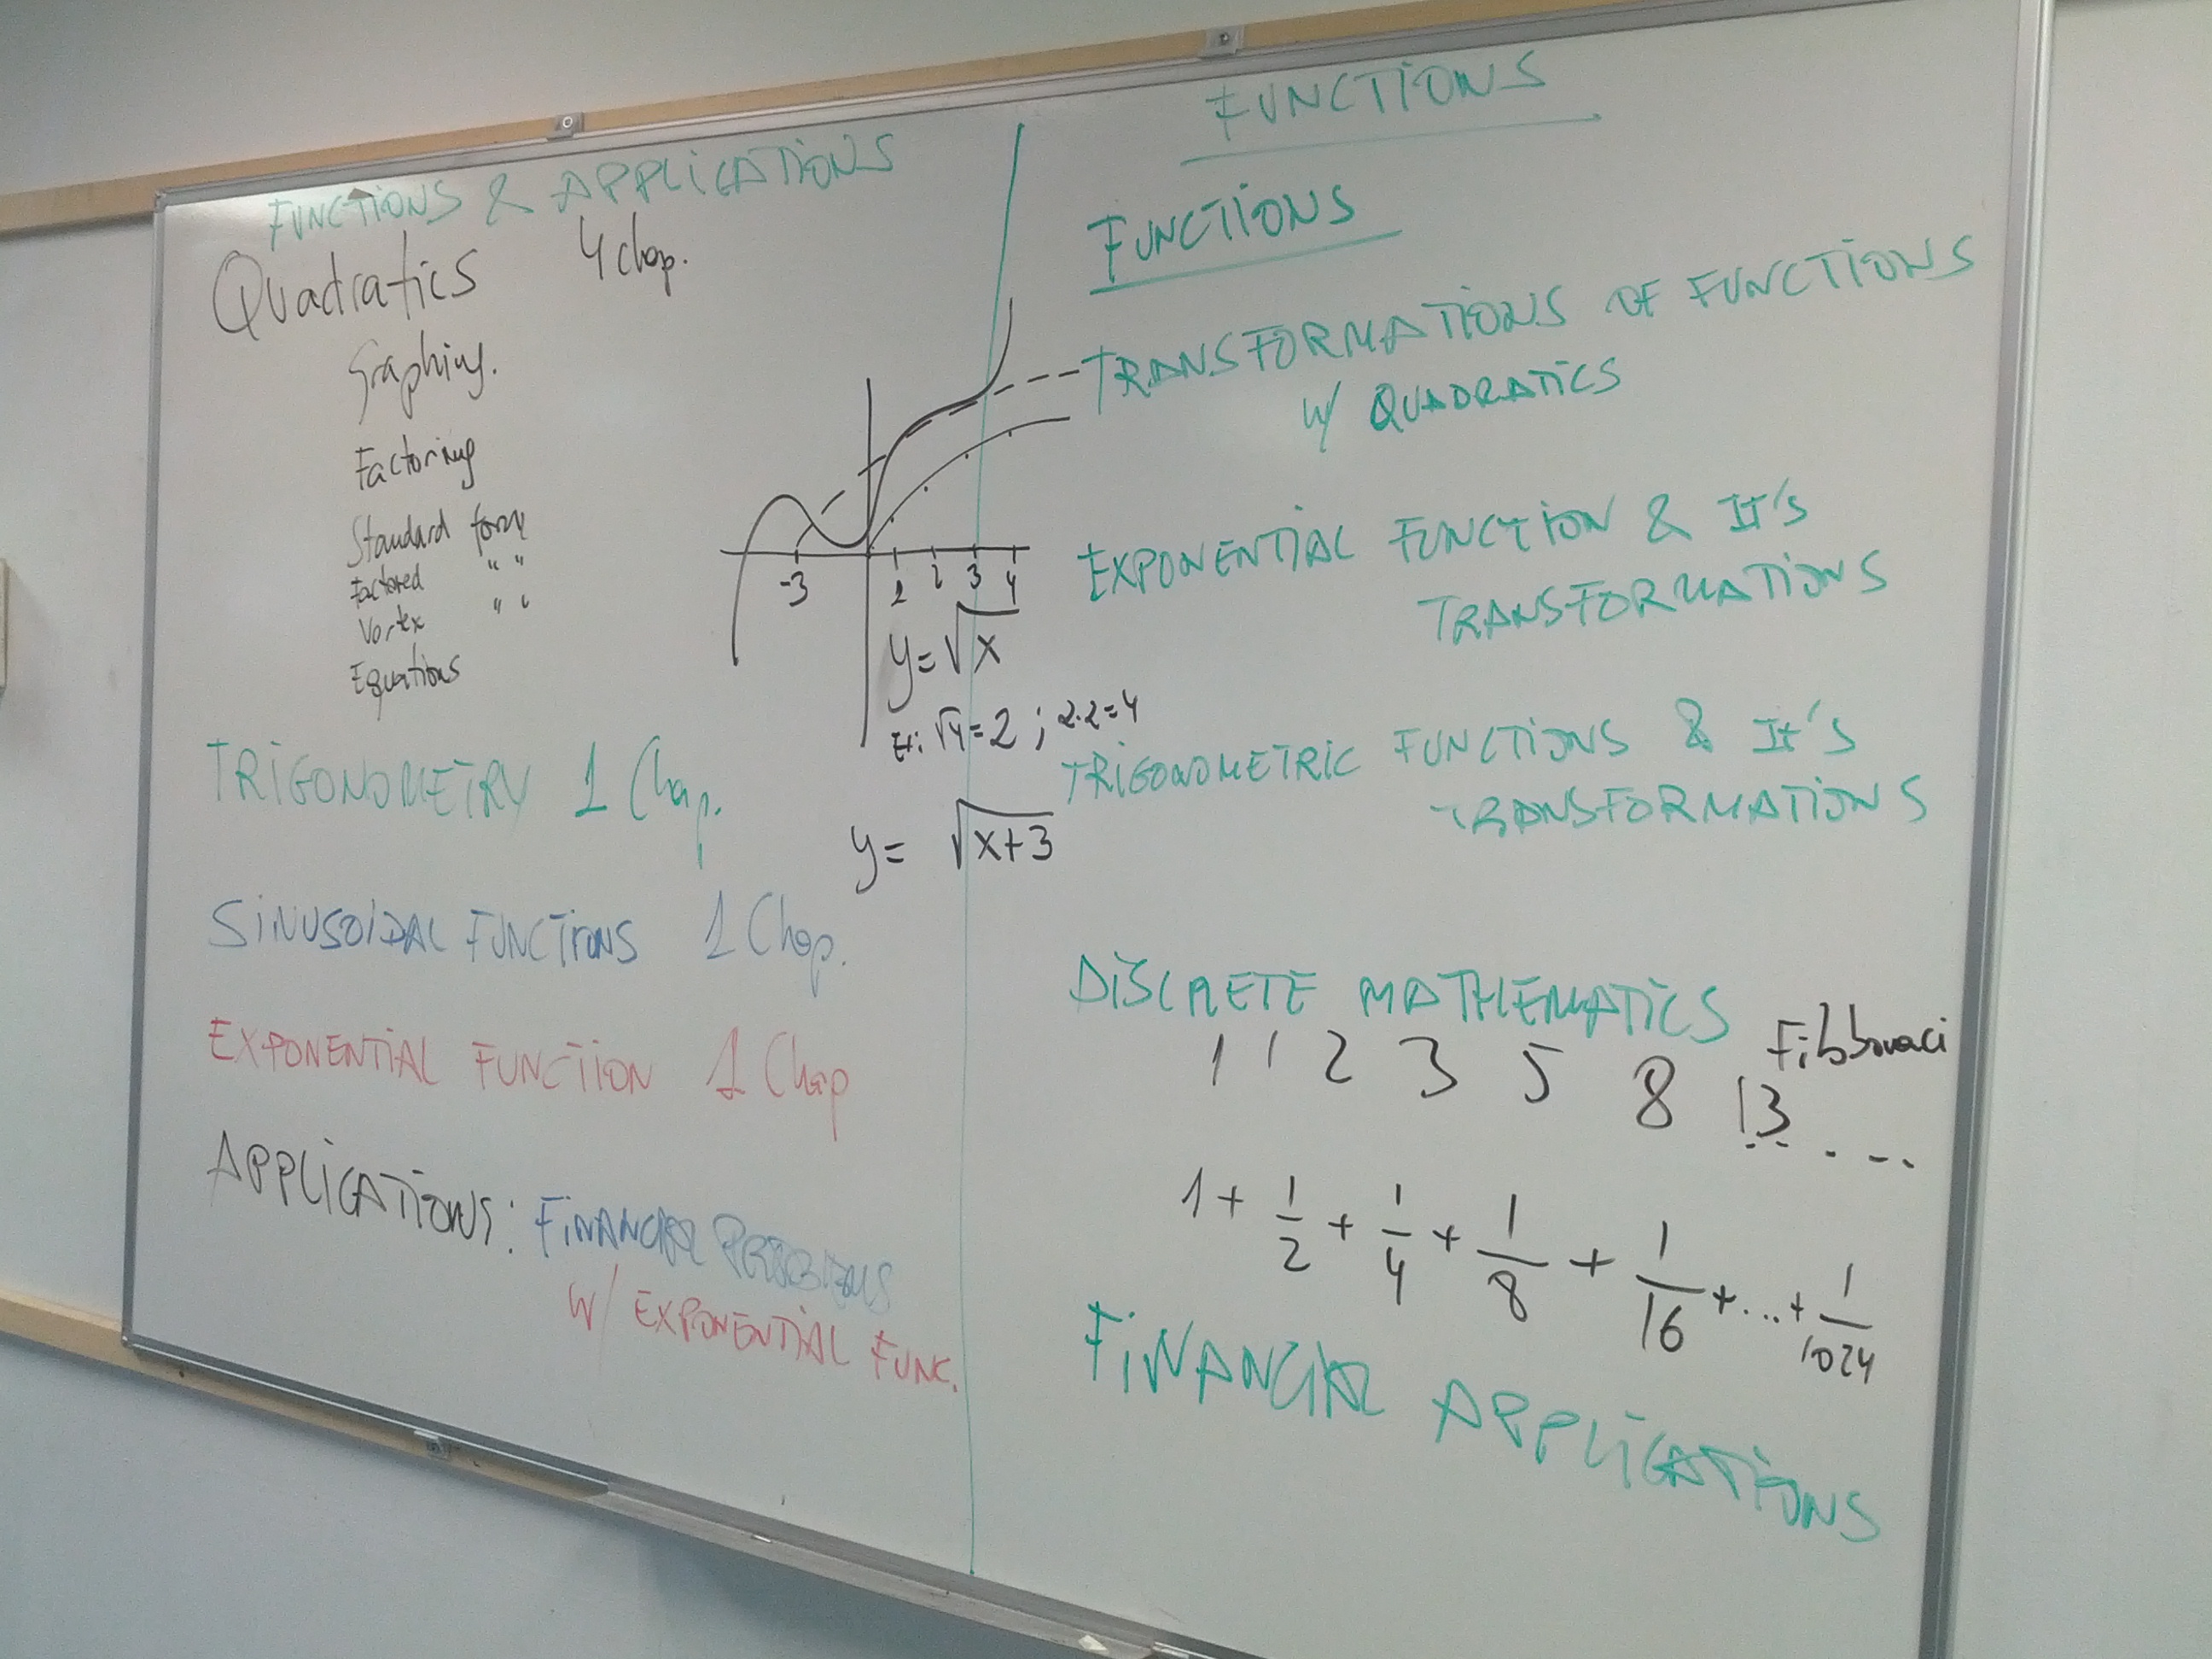 FUNCTIONS & APPLICATIONS
Quadratics 4 chap.
Graphing.
Factoring
Standard form
Factored " "
Vortex " "
Equations
-3 1 2 3 4
y=√x
Ex: √4=2 ; 2·2=4
y= √x+3
TRIGONOMETRY 1 Chap.
SINUSOIDAL FUNCTIONS 1 Chap.
EXPONENTIAL FUNCTION 1 Chap
APPLICATIONS: FINANCIAL PROBLEMS
W/ EXPONENTIAL FUNC.
FUNCTIONS
FUNCTIONS
TRANSFORMATIONS OF FUNCTIONS
W/ QUADRATICS
EXPONENTIAL FUNCTION & It's
TRANSFORMATIONS
TRIGONOMETRIC FUNCTIONS & It's
TRANSFORMATIONS
DISCRETE MATHEMATICS
Fibbonaci
1 1 2 3 5 8 13 ....
1 + 1/2 + 1/4 + 1/8 + 1/16 + ... + 1/1024
FINANCIAL APPLICATIONS